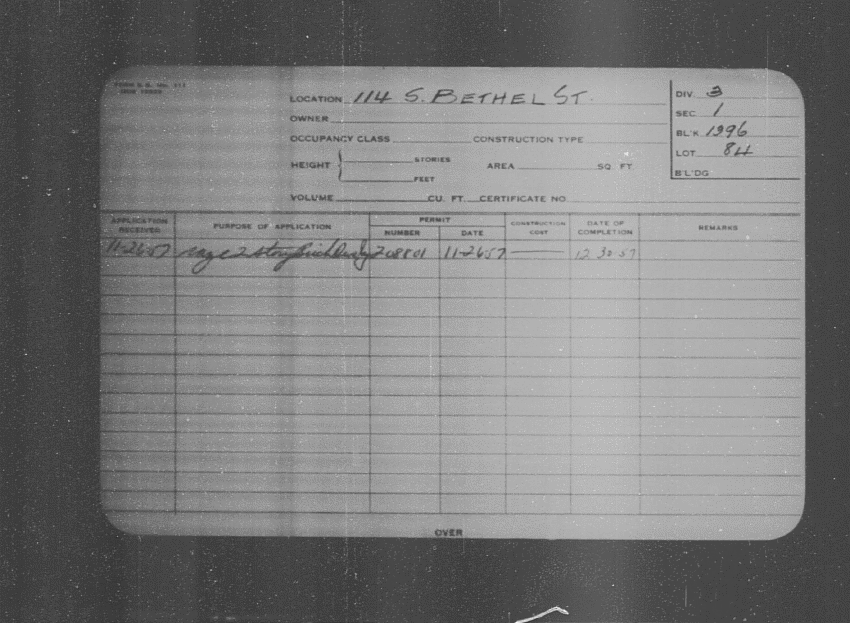 LOCATION 114 S. BETHEL ST.
OWNER
OCCUPANCY CLASS CONSTRUCTION TYPE
HEIGHT STORIES AREA SQ FT.
FEET
VOLUME CU. FT. CERTIFICATE NO.
DIV. 3
SEC 1
BL'K 1396
LOT 84
B'L'DG
APPLICATION RECEIVED PURPOSE OF APPLICATION PERMIT NUMBER DATE CONSTRUCTION COST DATE OF COMPLETION REMARKS
11-26-57 raze 2 story Brick 208801 11-26-57 12 30 57
OVER